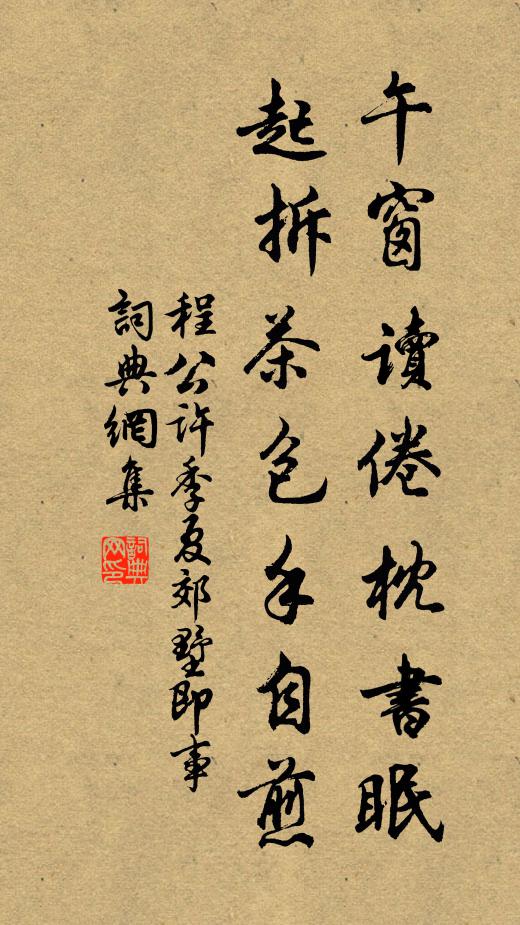 午窗讀倦枕書眠
起拆茶包手自煎
程公許季夏郊墅即事
詞典網集
詞典網印